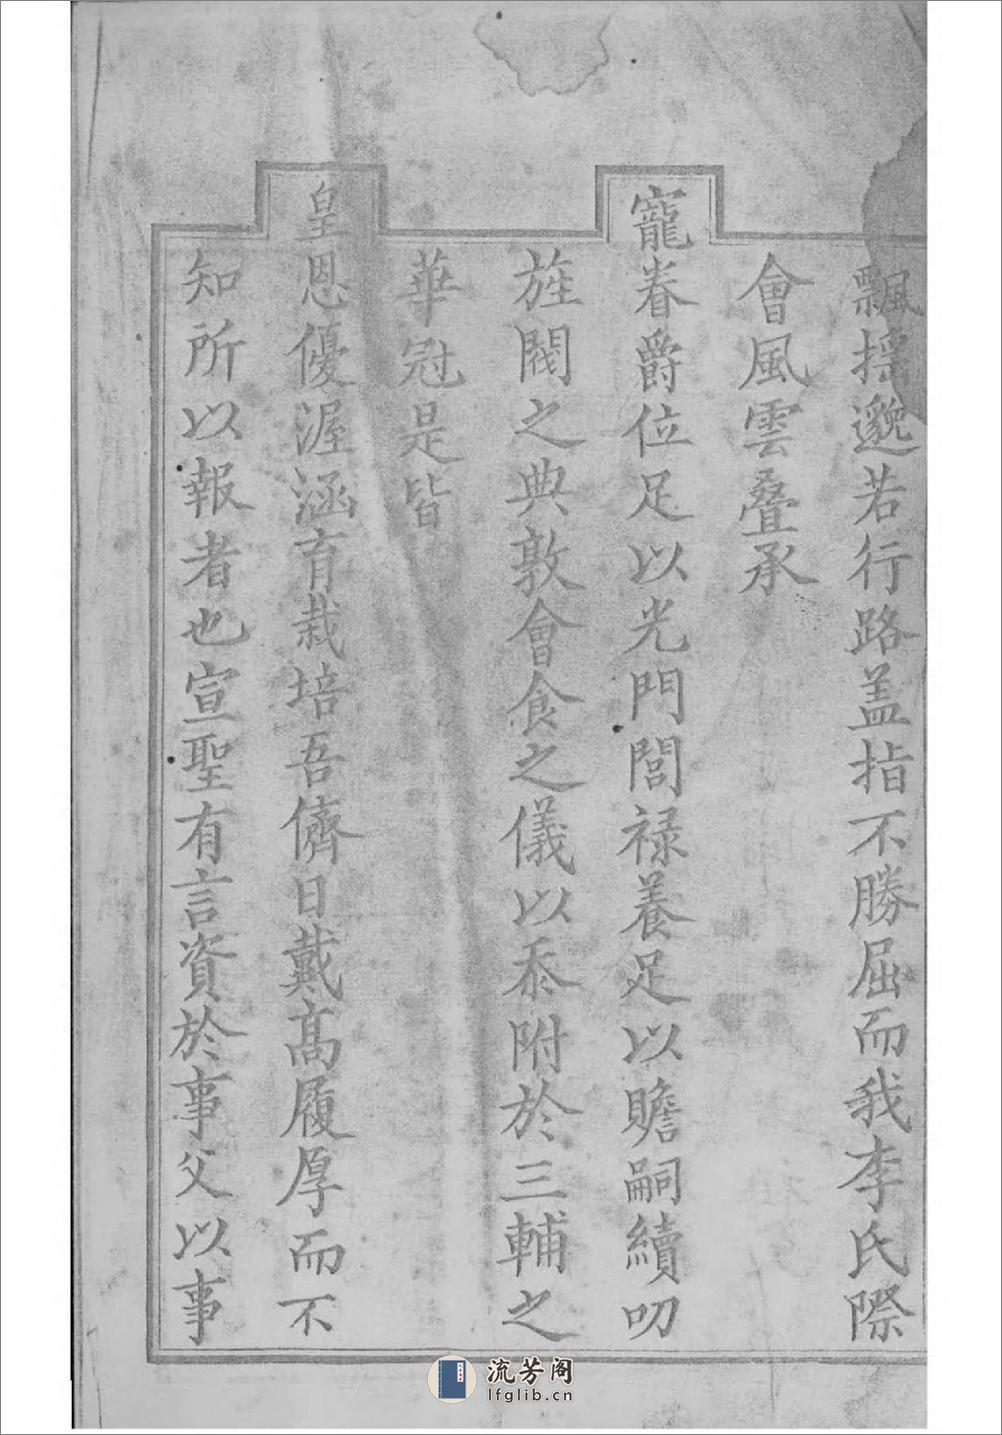 飄搖邈若行路盖指不勝屈而我李氏際
會風雲叠承
寵眷爵位足以光門閭禄養足以贍嗣續叨
旌閥之典敦會食之儀以忝附於三輔之
華冠是皆
皇恩優渥涵育栽培吾儕日戴高履厚而不
知所以報者也宣聖有言資於事父以事
流芳阁
lfglib.cn